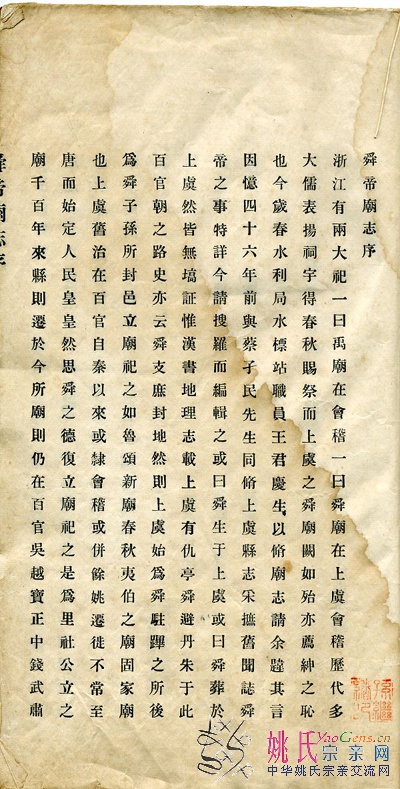 舜帝廟志序
浙江有兩大祀一曰禹廟在會稽一曰舜廟在上虞會稽歷代多
大儒表揚祠宇得春秋賜祭而上虞之舜廟闕如殆亦薦紳之恥
也今歲春水利局水標站職員王君慶生以脩廟志請余韙其言
因憶四十六年前與蔡孑民先生同脩上虞縣志采摭舊聞誌舜
帝之事特詳今請搜羅而編輯之或曰舜生于上虞或曰舜葬於
上虞然皆無塙証惟漢書地理志載上虞有仇亭舜避丹朱于此
百官朝之路史亦云舜支庶封地然則上虞始爲舜駐蹕之所後
爲舜子孫所封邑立廟祀之如魯頌新廟春秋夷伯之廟固家廟
也上虞舊治在百官自秦以來或隸會稽或併餘姚遷徙不常至
唐而始定人民皇皇然思舜之德復立廟祀之是爲里社公立之
廟千百年來縣則遷於今所廟則仍在百官吳越寶正中錢武肅
舜帝廟志序
姚氏YaoGens.cn
宗亲网
中华姚氏宗亲交流网